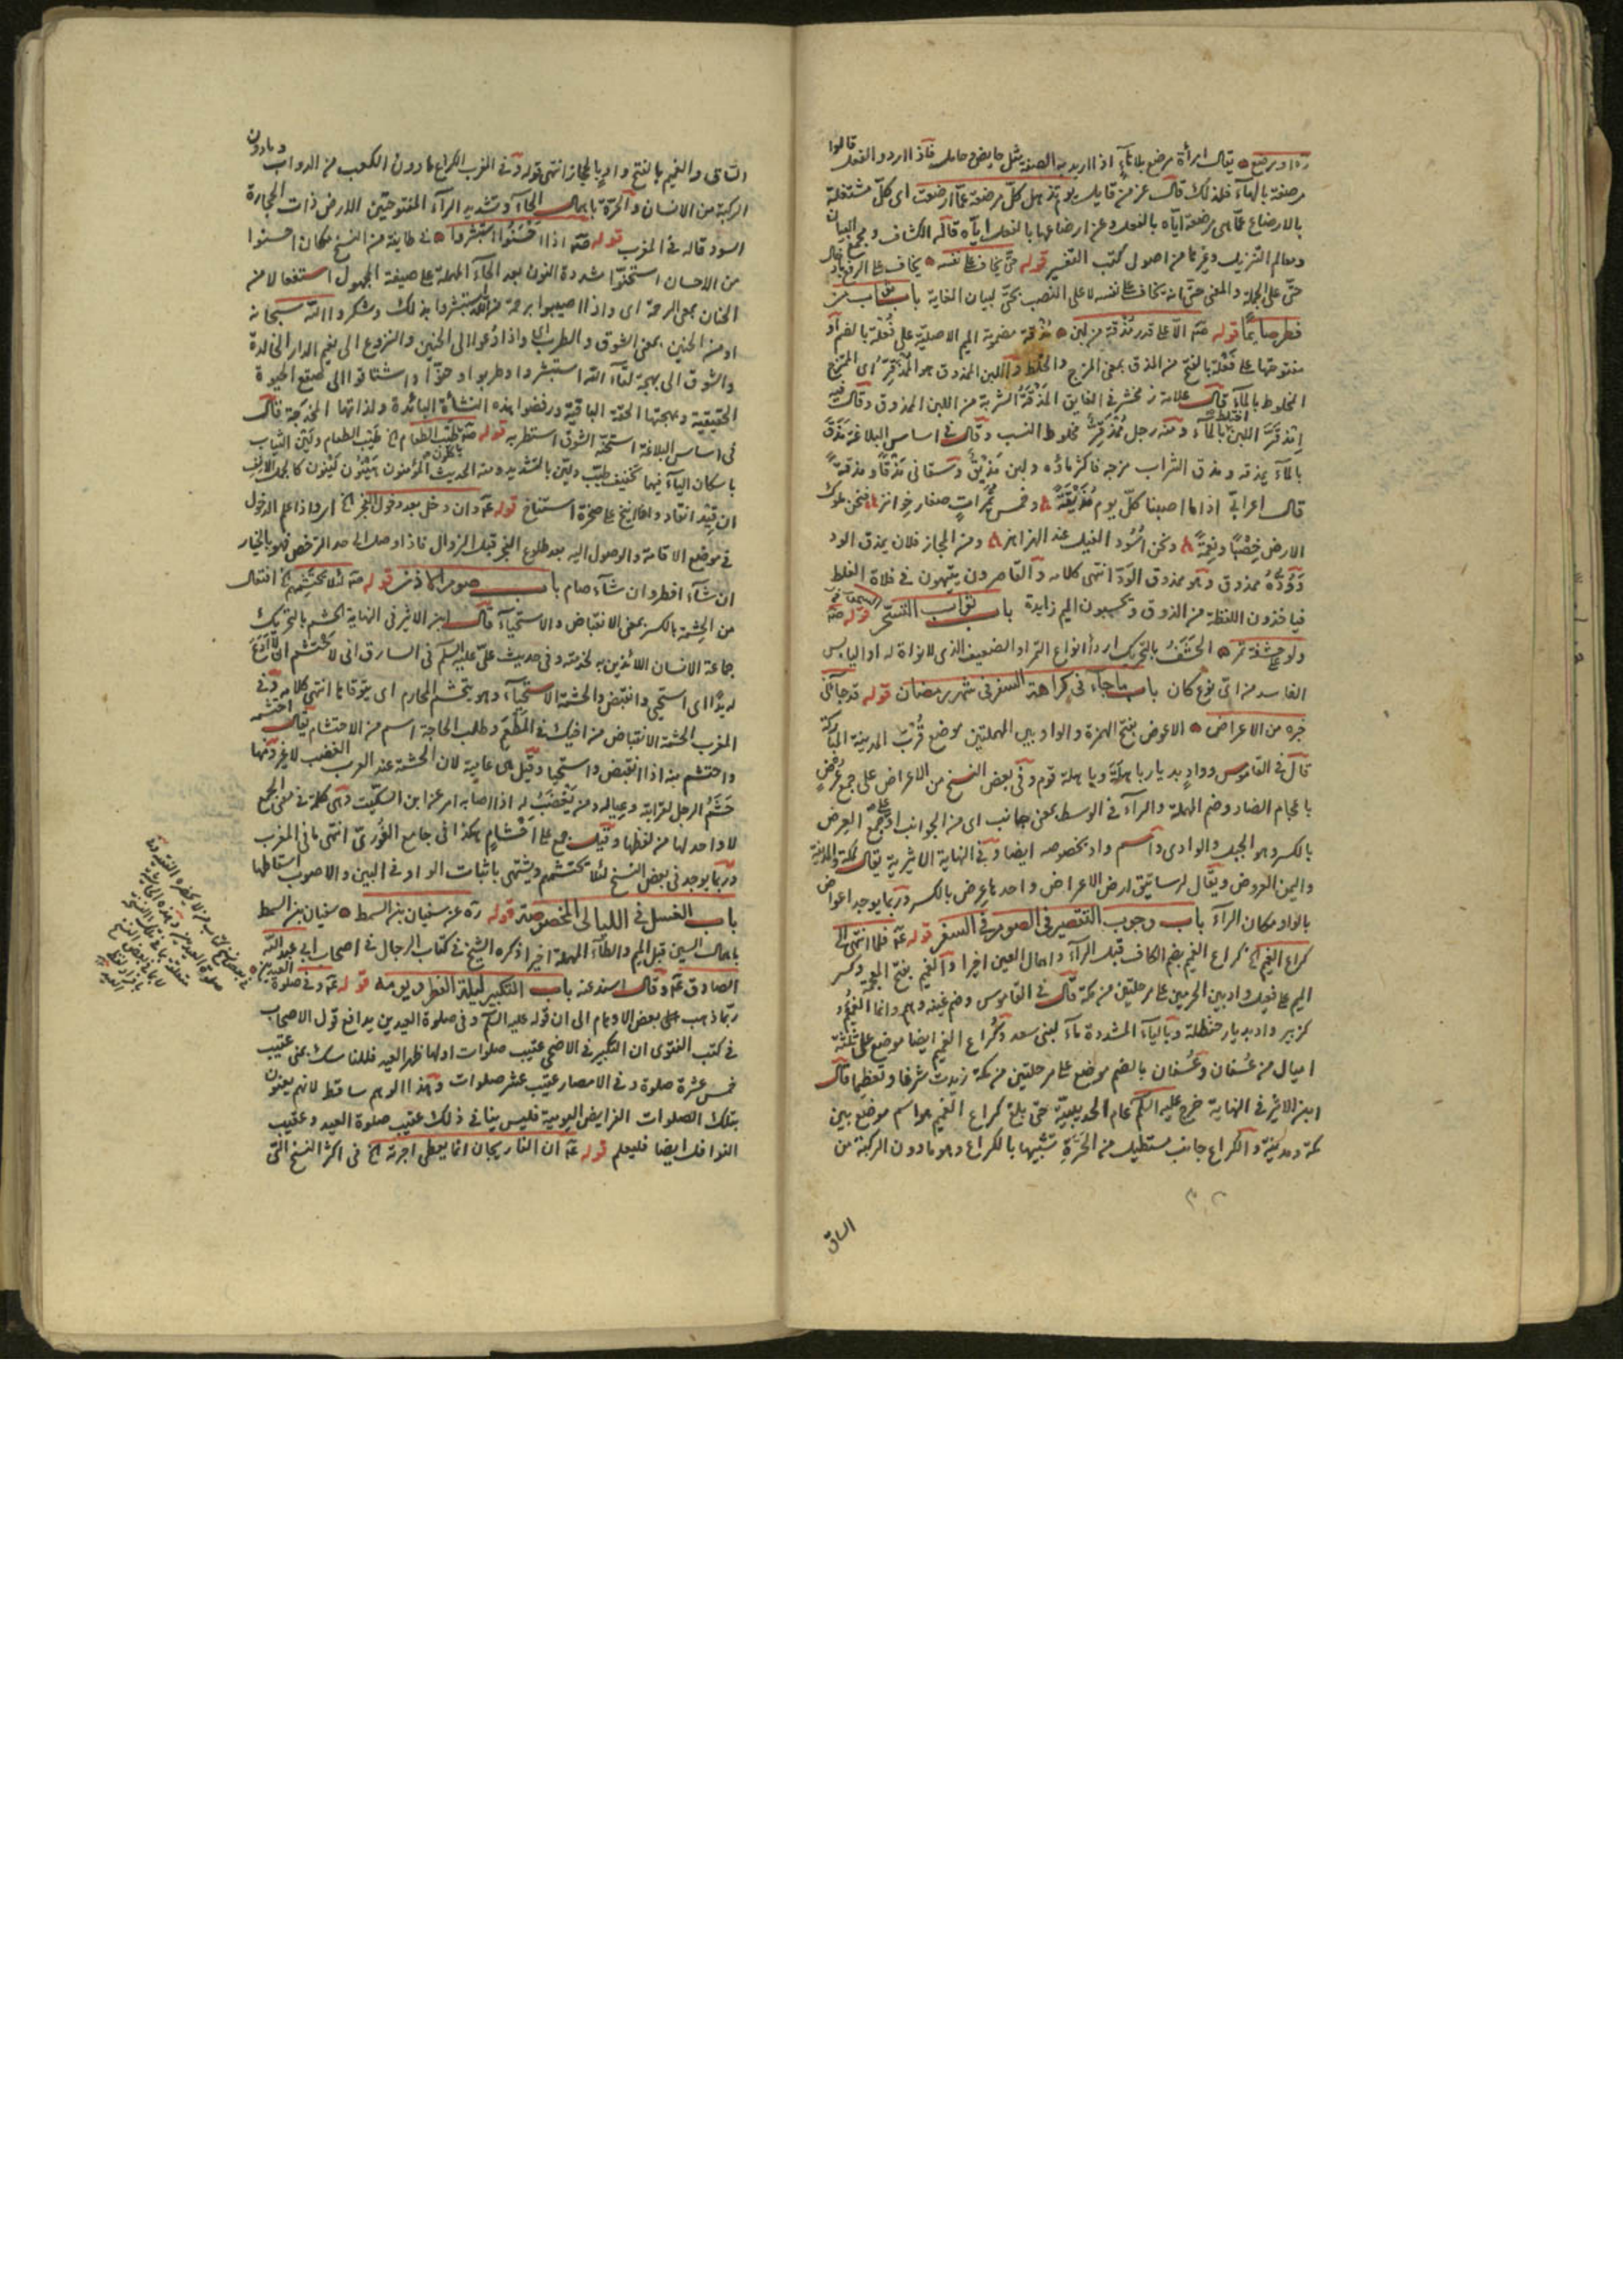 يقال امرأة مرضع بلا تاء اذا اريد به الصفة مثل حايض وحامل فاذا ارادوا الفعل قالوا
مرضعة بالهاء فلذلك قال عز من قايل يوم تذهل كل مرضعة عما ارضعت اى كل مشتغلة
بالارضاع عما هى مرضعة اياه بالفعل وعن ارضاعها بالفعل اياه قاله الكشاف ومجمع البيان
ومعالم التنزيل وغيرها من اصول كتب التفسير قوله حتى يخاف على نفسه يخاف على الرفع
حتى على الجملة والمعنى حتى انه يخاف على نفسه لا على النصب بحتى لبيان الغاية باب ثواب من
فطر صايما قوله الا على قدر مذقة من لبن مذقة مضمومة الميم الاصلية على فعلة بالضم او
مفتوحتها على فعلة بالفتح من المذق بمعنى المزج والخلط واللبن المذوق هو الممذقر اى الممتزج
المخلوط بالماء قال علامة زمخشر فى الفايق المذقة الشربة من اللبن الممذوق وقال فيه
امذقر اللبن اختلط بالماء ومنه رجل ممذقر مخلوط النسب وقال فى اساس البلاغة مذق
بالماء يمذقه ومذق الشراب مزجه فاكثر ماؤه ولبن مذيق وسقانى مذقا ومذقة
قال اعرابى اذا ما اصبنا كل يوم مذيقة وخمس تميرات صغار خوانز فنحن ملوك
الارض خصبا ونعمة ونحن اسود الغيل عند الهزاهز ومن المجاز فلان يمذق الود
ووده ممذوق وهو ممذوق الود انتهى كلامه والقاصرون يتيهون فى فلاة الغلط
فياخذون اللفظة من الذوق ويحسبون الميم زايدة باب ثواب التسحر قوله
ولو على حشفة تمر الحشف بالتحريك اردأ انواع التمر او الضعيف الذى لا نواة له او اليابس
الفاسد من اى نوع كان باب ما جاء فى كراهة السفر فى شهر رمضان قوله قد جاءنى
خبره من الاعراض الاعوض بفتح الهمزة والواو بين المهملتين موضع قرب المدينة المباركة
قال فى القاموس وواد بديار باهلة وباهلة قوم وفى بعض النسخ من الاعراض على جمع عرض
باعجام الضاد وضم المهملة والراء فى الوسط بمعنى جانب اى من الجوانب او على جمع العرض
بالكسر وهو الجبل والوادى واسم واد بخصوصه ايضا وفى النهاية الاثيرية يقال لمكة والمدينة
واليمن العروض ويقال لرساتيق ارض الاعراض واحدها عرض بالكسر وربما يوجد اعواض
بالواو مكان الراء باب وجوب التقصير فى الصوم فى السفر قوله فلما انتهى الى
كراع الغميم كراع الغميم بضم الكاف قبل الراء واهمال العين اخيرا والغميم بفتح المعجمة وكسر
الميم على فعيل واد بين الحرمين على مرحلتين من مكة قال فى القاموس وضم غينه وهم وانما الغميم
كزبير واد بديار حنظلة وبالياء المشددة ماء لبنى سعد وكراع الغميم ايضا موضع على ثلثة
اميال من عسفان وعسفان بالضم موضع على مرحلتين من مكة زيدت شرفا وتعظيما قال
ابن الاثير فى النهاية خرج عليه السلم عام الحديبية حتى بلغ كراع الغميم هو اسم موضع بين
مكة ومدينة والكراع جانب مستطيل من الحرة تشبيها بالكراع وهو ما دون الركبة من
الساق
الساق والغميم بالفتح واد بالحجاز انتهى قوله وفى المغرب الكراع ما دون الكعب من الدواب وما دون
الركبة من الانسان والحرة باهمال الحاء وتشديد الراء المفتوحتين الارض ذات الحجارة
السود قاله فى المغرب قوله اذا احسنوا استبشروا فى طايفة من النسخ مكان احسنوا
من الاحسان استحنوا مشددة النون بعد الحاء المهملة على صيغة المجهول استفعالا من
الحنان بمعنى الرحمة اى واذا اصيبوا برحمة من الله استبشروا بذلك وشكروا الله سبحانه
او من الحنين بمعنى الشوق والطرب اى واذا دعوا الى الحنين والنزوع الى نعيم الدار الخالدة
والشوق الى بهجة لقاء الله استبشروا وطربوا وحنوا واشتاقوا الى صقع الحيوة
الحقيقية وبهجتها الحقة الباقية ورفضوا هذه النشأة البائدة ولذاتها المخدجة قال
فى اساس البلاغة استحنه الشوق استطربه قوله طيب الطعام طيب الطعام ولين الثياب
باسكان الياء فيهما تخفيف طيب ولين بالتشديد ومنه الحديث المؤمنون هينون لينون كالجمل الانف
ان قيد انقاد وان انيخ على صخرة استناخ قوله وان دخل بعد دخول الفجر اى واذا علم الدخول
فى موضع الاقامة والوصول اليه بعد طلوع الفجر قبل الزوال فاذا وصل الى حد الترخص فهو بالخيار
ان شاء افطر وان شاء صام باب صوم الاذن قوله لئلا يحتشمهم افتعال
من الحشمة بالكسر بمعنى الانقباض والاستحياء قال ابن الاثير فى النهاية الحشم بالتحريك
جماعة الانسان اللائذين به لخدمته وفى حديث على عليه السلم فى السارق انى لاحتشم ان لا ادع
له يدا اى استحيى وانقبض والحشمة الاستحياء وهو يتحشم المحارم اى يتوقاها انتهى كلامه وفى
المغرب الحشمة الانقباض من اخيك فى المطعم وطلب الحاجة اسم من الاحتشام يقال احتشمه
واحتشم منه اذا انقبض واستحيا وقيل هى عامية لان الحشمة عند العرب الغضب لا غير ومنها
حشم الرجل لقرابته وعياله ومن يغضب له اذا اصابه امر عن ابن السكيت وهى كلمة فى معنى الجمع
لا واحد لها من لفظها وقيل جمع على احشام هكذا فى جامع الغورى انتهى ما فى المغرب
وربما يوجد فى بعض النسخ لئلا يحتشمهم ويشتهى باثبات الواو فى البين والاصوب اسقاطها
باب الغسل فى الليالى المخصوصة قوله عن سفيان بن السمط سفيان بن السمط
باهمال السين قبل الميم والطاء المهملة اخيرا ذكره الشيخ فى كتاب الرجال فى اصحاب ابى عبد الله
الصادق وقال اسند عنه باب التكبير ليلة الفطر ويومه قوله وفى صلوة العيدين
ربما ذهب بعض الاوهام الى ان قوله عليه السلم وفى صلوة العيدين يدافع قول الاصحاب
فى كتب الفتوى ان التكبير فى الاضحى عقيب صلوات اولها ظهر العيد فللناسك بمنى عقيب
خمس عشرة صلوة وفى الامصار عقيب عشر صلوات وهذا الوهم ساقط لانهم يعنون
بتلك الصلوات الفرايض اليومية فليس ينافى ذلك عقيب صلوة العيد وعقيب
النوافل ايضا فليعلم قوله ان الفاريجان انما يعطى اجرته فى اكثر النسخ التى